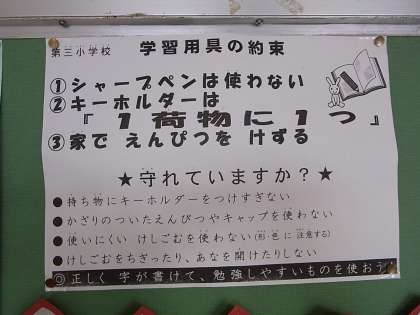 第三小学校
学習用具の約束
①シャープペンは使わない
②キーホルダーは
『１荷物に１つ』
③家で えんぴつを けずる
★守れていますか？★
●持ち物にキーホルダーをつけすぎない
●かざりのついたえんぴつやキャップを使わない
●使いにくい けしごむを使わない(形・色に注意する)
●けしごむをちぎったり、あなを開けたりしない
◎正しく 字が書けて、勉強しやすいものを使おう